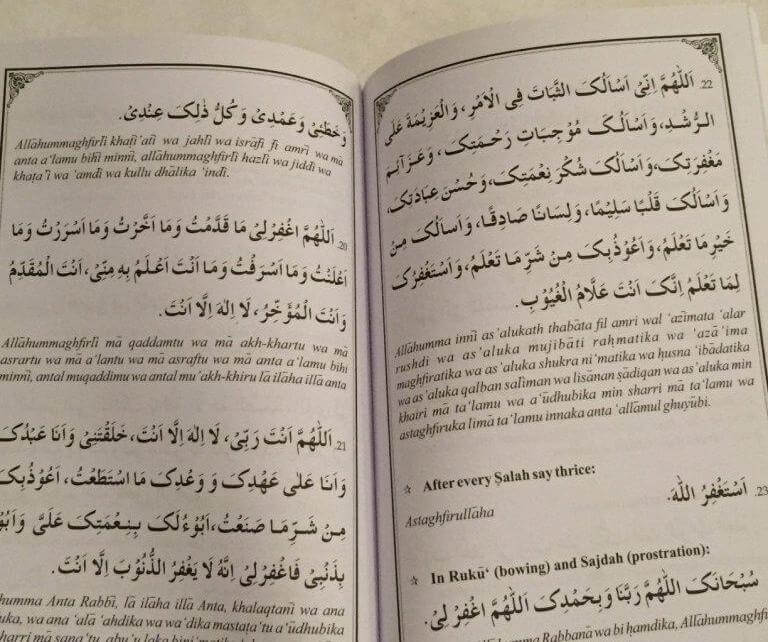 وَخَطَئِیْ وَعَمْدِیْ وَکُلُّ ذٰلِکَ عِنْدِیْ.
Allāhummaghfirlī khaṭī’atī wa jahlī wa isrāfī fī amrī wa mā
anta a‘lamu bihī minnī, allāhummaghfirlī hazlī wa jiddī wa
khaṭa’ī wa ‘amdī wa kullu dhālika ‘indī.
20. اَللّٰهُمَّ اغْفِرْلِیْ مَا قَدَّمْتُ وَمَا اَخَّرْتُ وَمَا اَسْرَرْتُ وَمَا
اَعْلَنْتُ وَمَا اَسْرَفْتُ وَمَا اَنْتَ اَعْلَمُ بِهٖ مِنِّیْ، اَنْتَ الْمُقَدِّمُ
وَاَنْتَ الْمُؤَخِّرُ، لَا اِلٰهَ اِلَّا اَنْتَ.
Allāhummaghfirlī mā qaddamtu wa mā akh-khartu wa mā
asrartu wa mā a‘lantu wa mā asraftu wa mā anta a‘lamu bihi
minnī, antal muqaddimu wa antal mu’akh-khiru lā ilāha illā anta
21. اَللّٰهُمَّ اَنْتَ رَبِّیْ، لَا اِلٰهَ اِلَّا اَنْتَ، خَلَقْتَنِیْ وَاَنَا عَبْدُکَ
وَاَنَا عَلٰی عَهْدِکَ وَ وَعْدِکَ مَا اسْتَطَعْتُ، اَعُوْذُبِکَ
مِنْ شَرِّ مَا صَنَعْتُ، اَبُوْءُ لَکَ بِنِعْمَتِکَ عَلَیَّ وَاَبُوْ
بِذَنْبِیْ فَاغْفِرْلِیْ اِنَّهُ لَا یَغْفِرُ الذُّنُوْبَ اِلَّا اَنْتَ.
humma Anta Rabbī, lā ilāha illā Anta, khalaqtanī wa ana
uka, wa ana ‘alā ‘ahdika wa wa‘dika mastaṭa‘tu a‘ūdhubika
22. اَللّٰهُمَّ اِنِّیْ اَسْاَلُکَ الثَّبَاتَ فِی الْاَمْرِ، وَالْعَزِیْمَةَ عَلَی
الرُّشْدِ، وَاَسْاَلُکَ مُوْجِبَاتِ رَحْمَتِکَ، وَعَزَآئِمَ
مَغْفِرَتِکَ، وَاَسْاَلُکَ شُکْرَ نِعْمَتِکَ، وَحُسْنَ عِبَادَتِکَ،
وَاَسْاَلُکَ قَلْبًا سَلِیْمًا، وَلِسَانًا صَادِقًا، وَاَسْاَلُکَ مِنْ
خَیْرِ مَا تَعْلَمُ، وَاَعُوْذُبِکَ مِنْ شَرِّ مَا تَعْلَمُ، وَاَسْتَغْفِرُکَ
لِمَا تَعْلَمُ اِنَّکَ اَنْتَ عَلَّامُ الْغُیُوْبِ.
Allāhumma innī as’alukath thabāta fil amri wal ‘azīmata ‘alar
rushdi wa as’aluka mujibāti raḥmatika wa ‘azā’ima
maghfiratika wa as’aluka shukra ni‘matika wa ḥusna ‘ibādatika
wa as’aluka qalban salīman wa lisānan ṣādiqan wa as’aluka min
khairi mā ta‘lamu wa a‘ūdhubika min sharri mā ta‘lamu wa
astaghfiruka limā ta‘lamu innaka anta ‘allāmul ghuyūbi.
☆ After every Ṣalah say thrice:
23. اَسْتَغْفِرُ اللّٰهَ.
Astaghfirullāha
☆ In Rukū‘ (bowing) and Sajdah (prostration):
سُبْحَانَکَ اللّٰهُمَّ رَبَّنَا وَبِحَمْدِکَ اَللّٰهُمَّ اغْفِرْ لِیْ.
Rabbanā wa bi ḥamdika, Allāhummaghfi